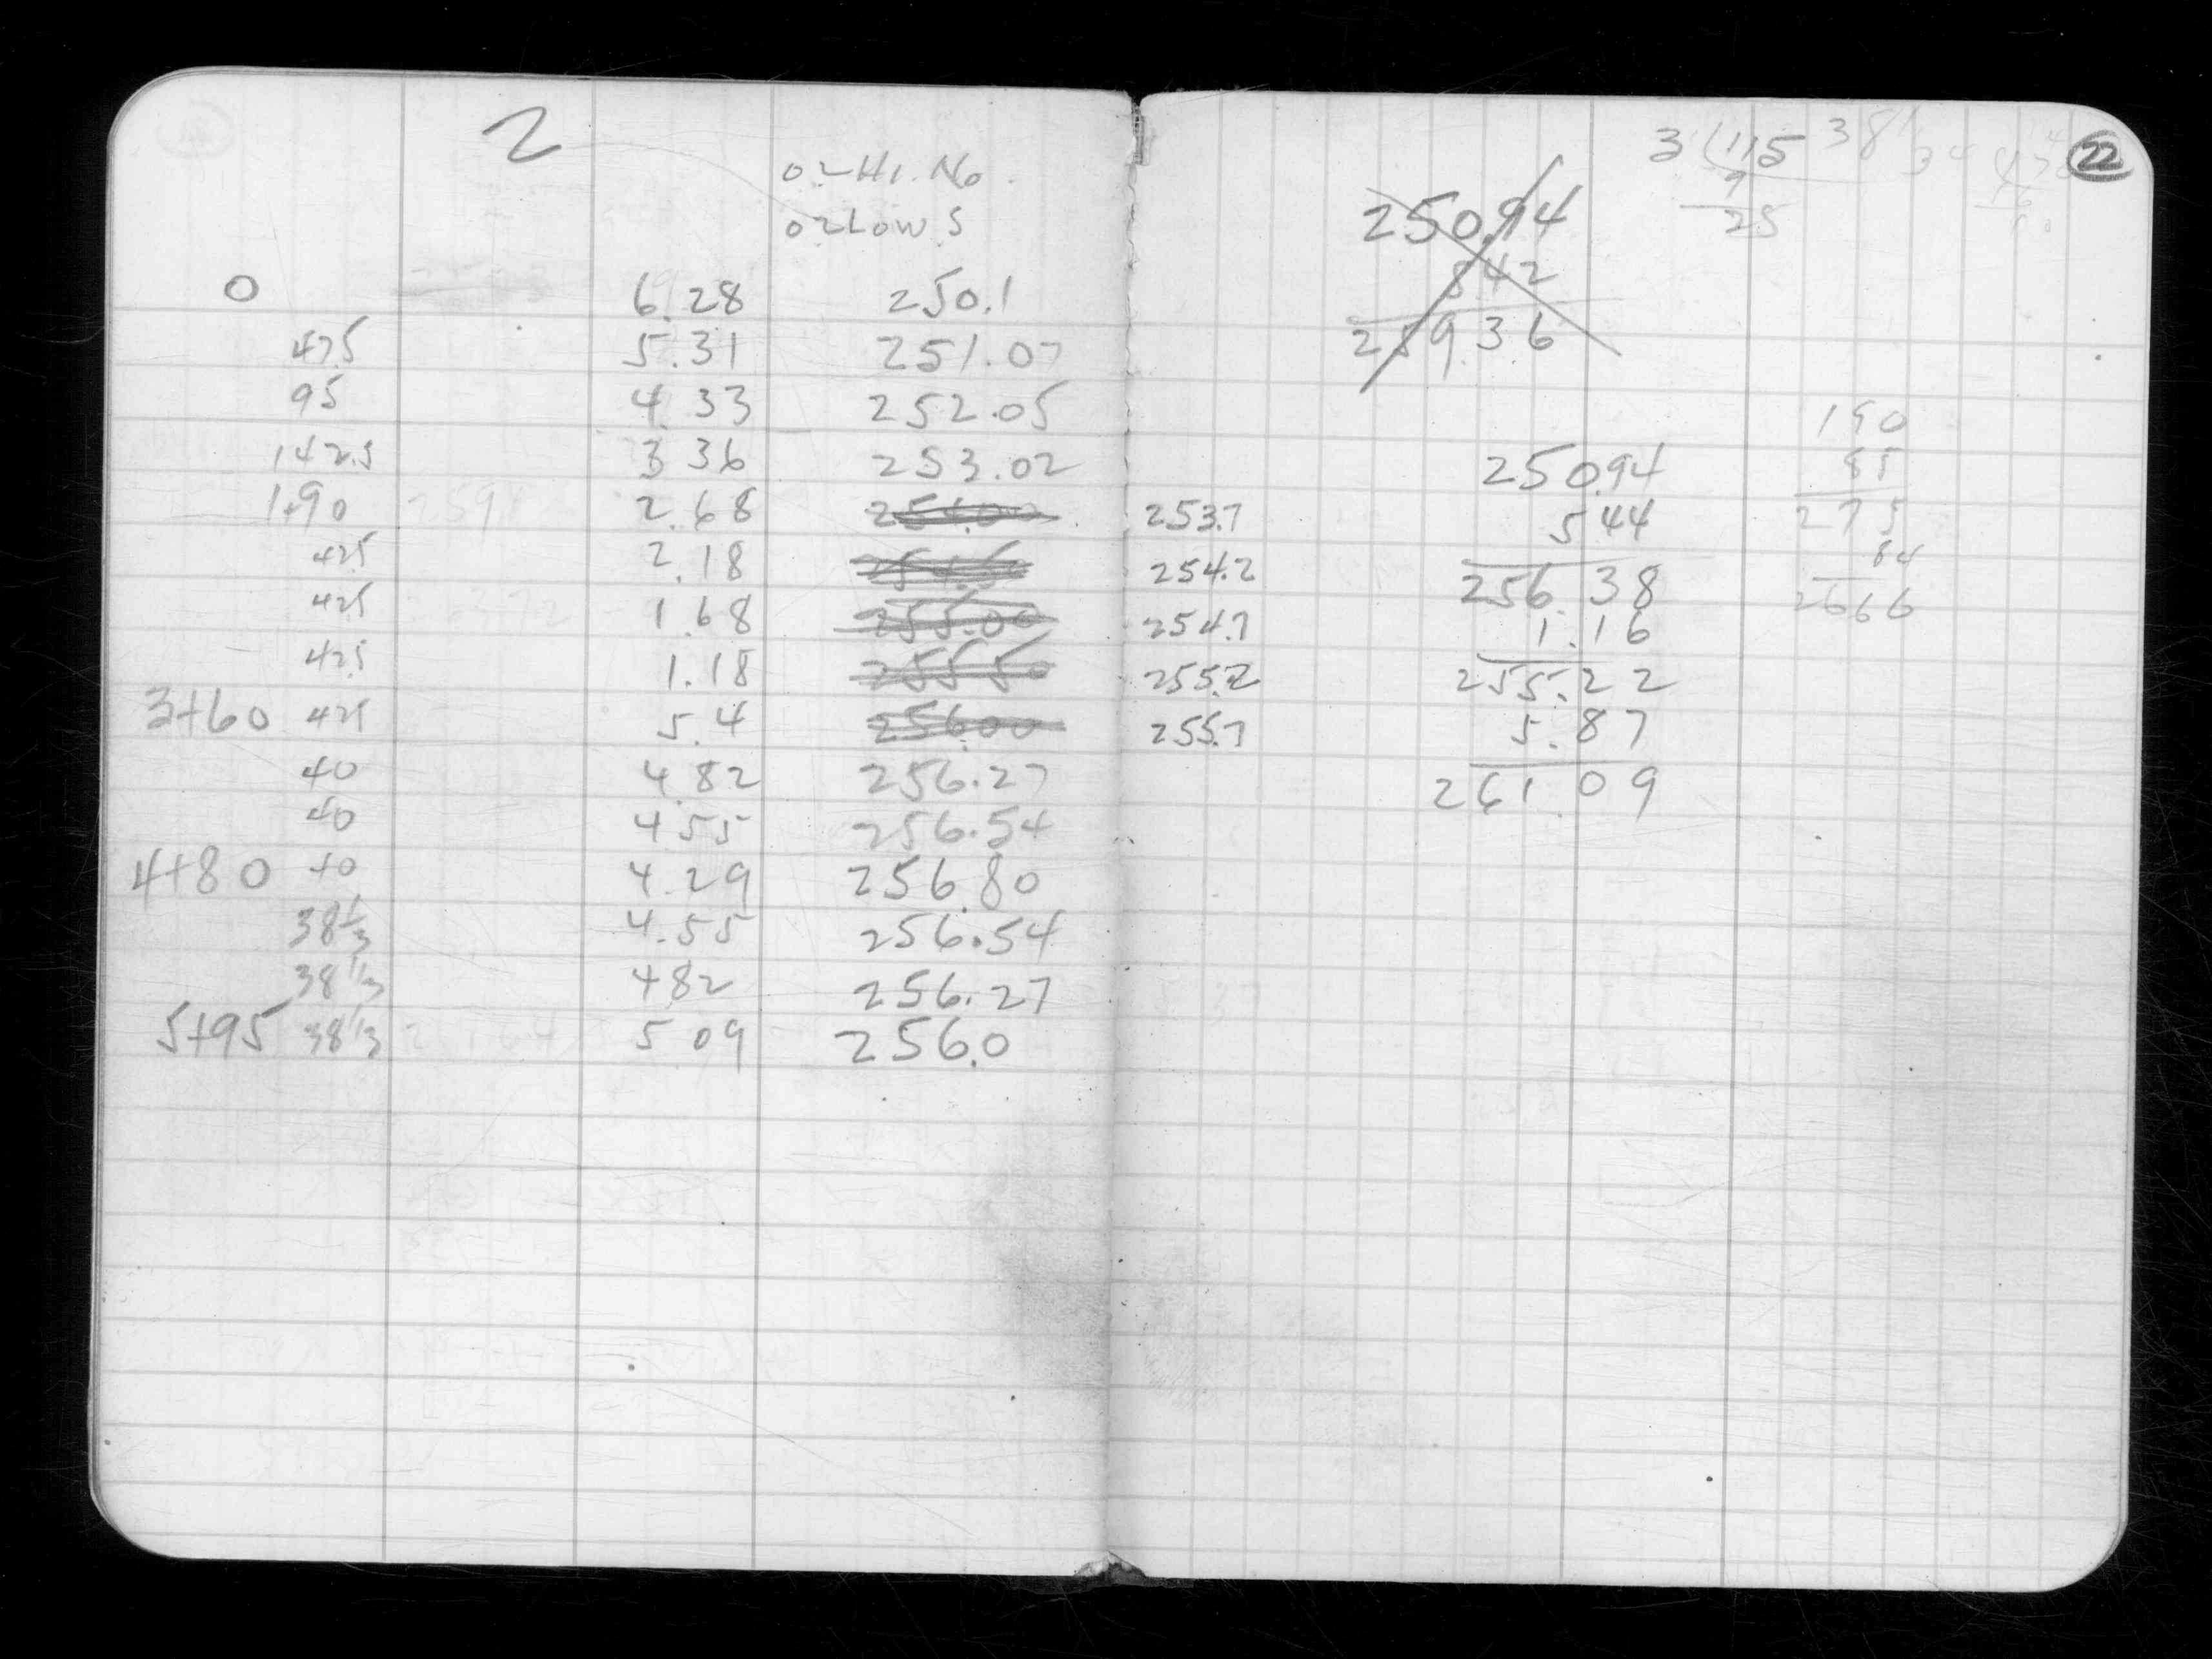 2
02 Hi. No.
02 Low S
0 6.28 250.1
47.5 5.31 251.07
95 4.33 252.05
142.5 3 36 253.02
1+90 2.68 254.00 253.7
42.5 2.18 254.50 254.2
42.5 1.68 255.00 254.7
42.5 1.18 255.50 255.2
3+60 42.5 5.4 256.00 255.7
40 4.82 256.27
40 4 55 256.54
4+80 40 4.29 256.80
38 1/3 4.55 256.54
38 1/3 4 82 256.27
5+95 38 1/3 5 09 256.0
22
3 115 38 1/3
9
25
250.94
8 42
259.36
250.94
5 44
256.38
1.16
255.22
5.87
261.09
190
85
275
84
2666